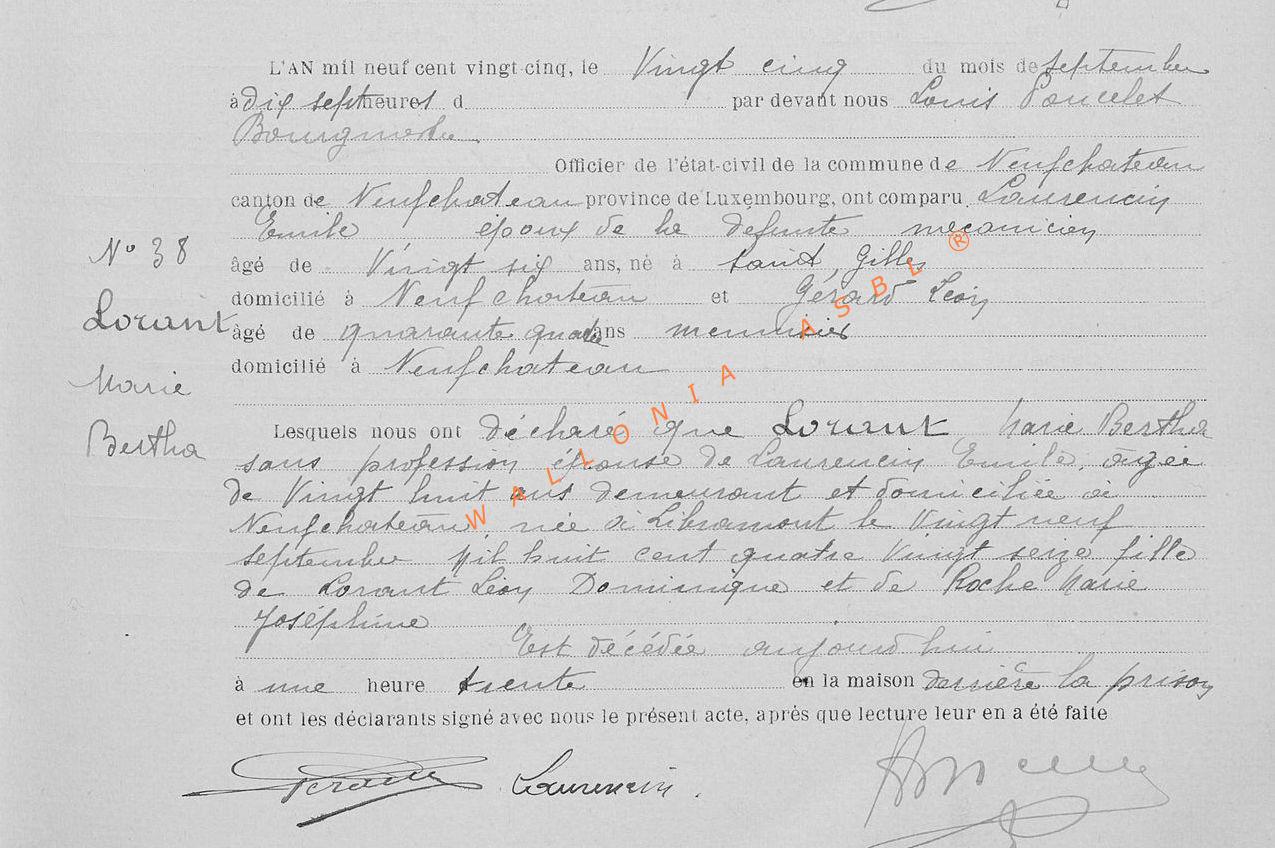 L'AN mil neuf cent vingt-cinq, le Vingt cinq du mois de septembre
à dix sept heures d par devant nous Louis Poncelet
Bourgmestre
Officier de l'état-civil de la commune de Neufchateau
canton de Neufchateau province de Luxembourg, ont comparu Laurencin
Emile époux de la défunte mecanicien
âgé de Vingt six ans, né à Saint Gilles
domicilié à Neufchateau et Gérard Léon
âgé de quarante quatre ans menuisier
domicilié à Neufchateau
N° 38
Lorant
Marie
Bertha
Lesquels nous ont déclaré que Lorant Marie Bertha
sans profession épouse de Laurencin Emile, agée
de Vingt huit ans demeurant et domiciliée à
Neufchateau, née à Libramont le Vingt neuf
septembre Mil huit cent quatre Vingt seize fille
de Lorant Léon Dominique et de Roche Marie
Joséphine
Est décédée aujourd'hui
à une heure trente en la maison derrière la prison
et ont les déclarants signé avec nous le présent acte, après que lecture leur en a été faite
Laurencin.
WALLONIA ASBL ®